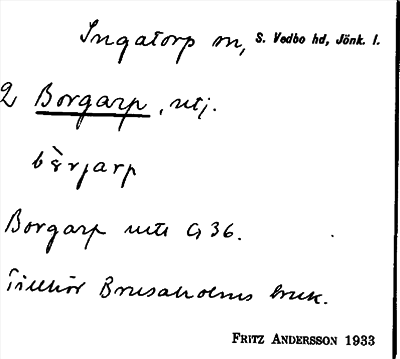 Ingatorp sn, S. Vedbo hd, Jönk. l.
2 Borgarp, utj.
bèrjarp
Borgarp utj G 36.
Tillhör Brusaholms bruk.
FRITZ ANDERSSON 1933